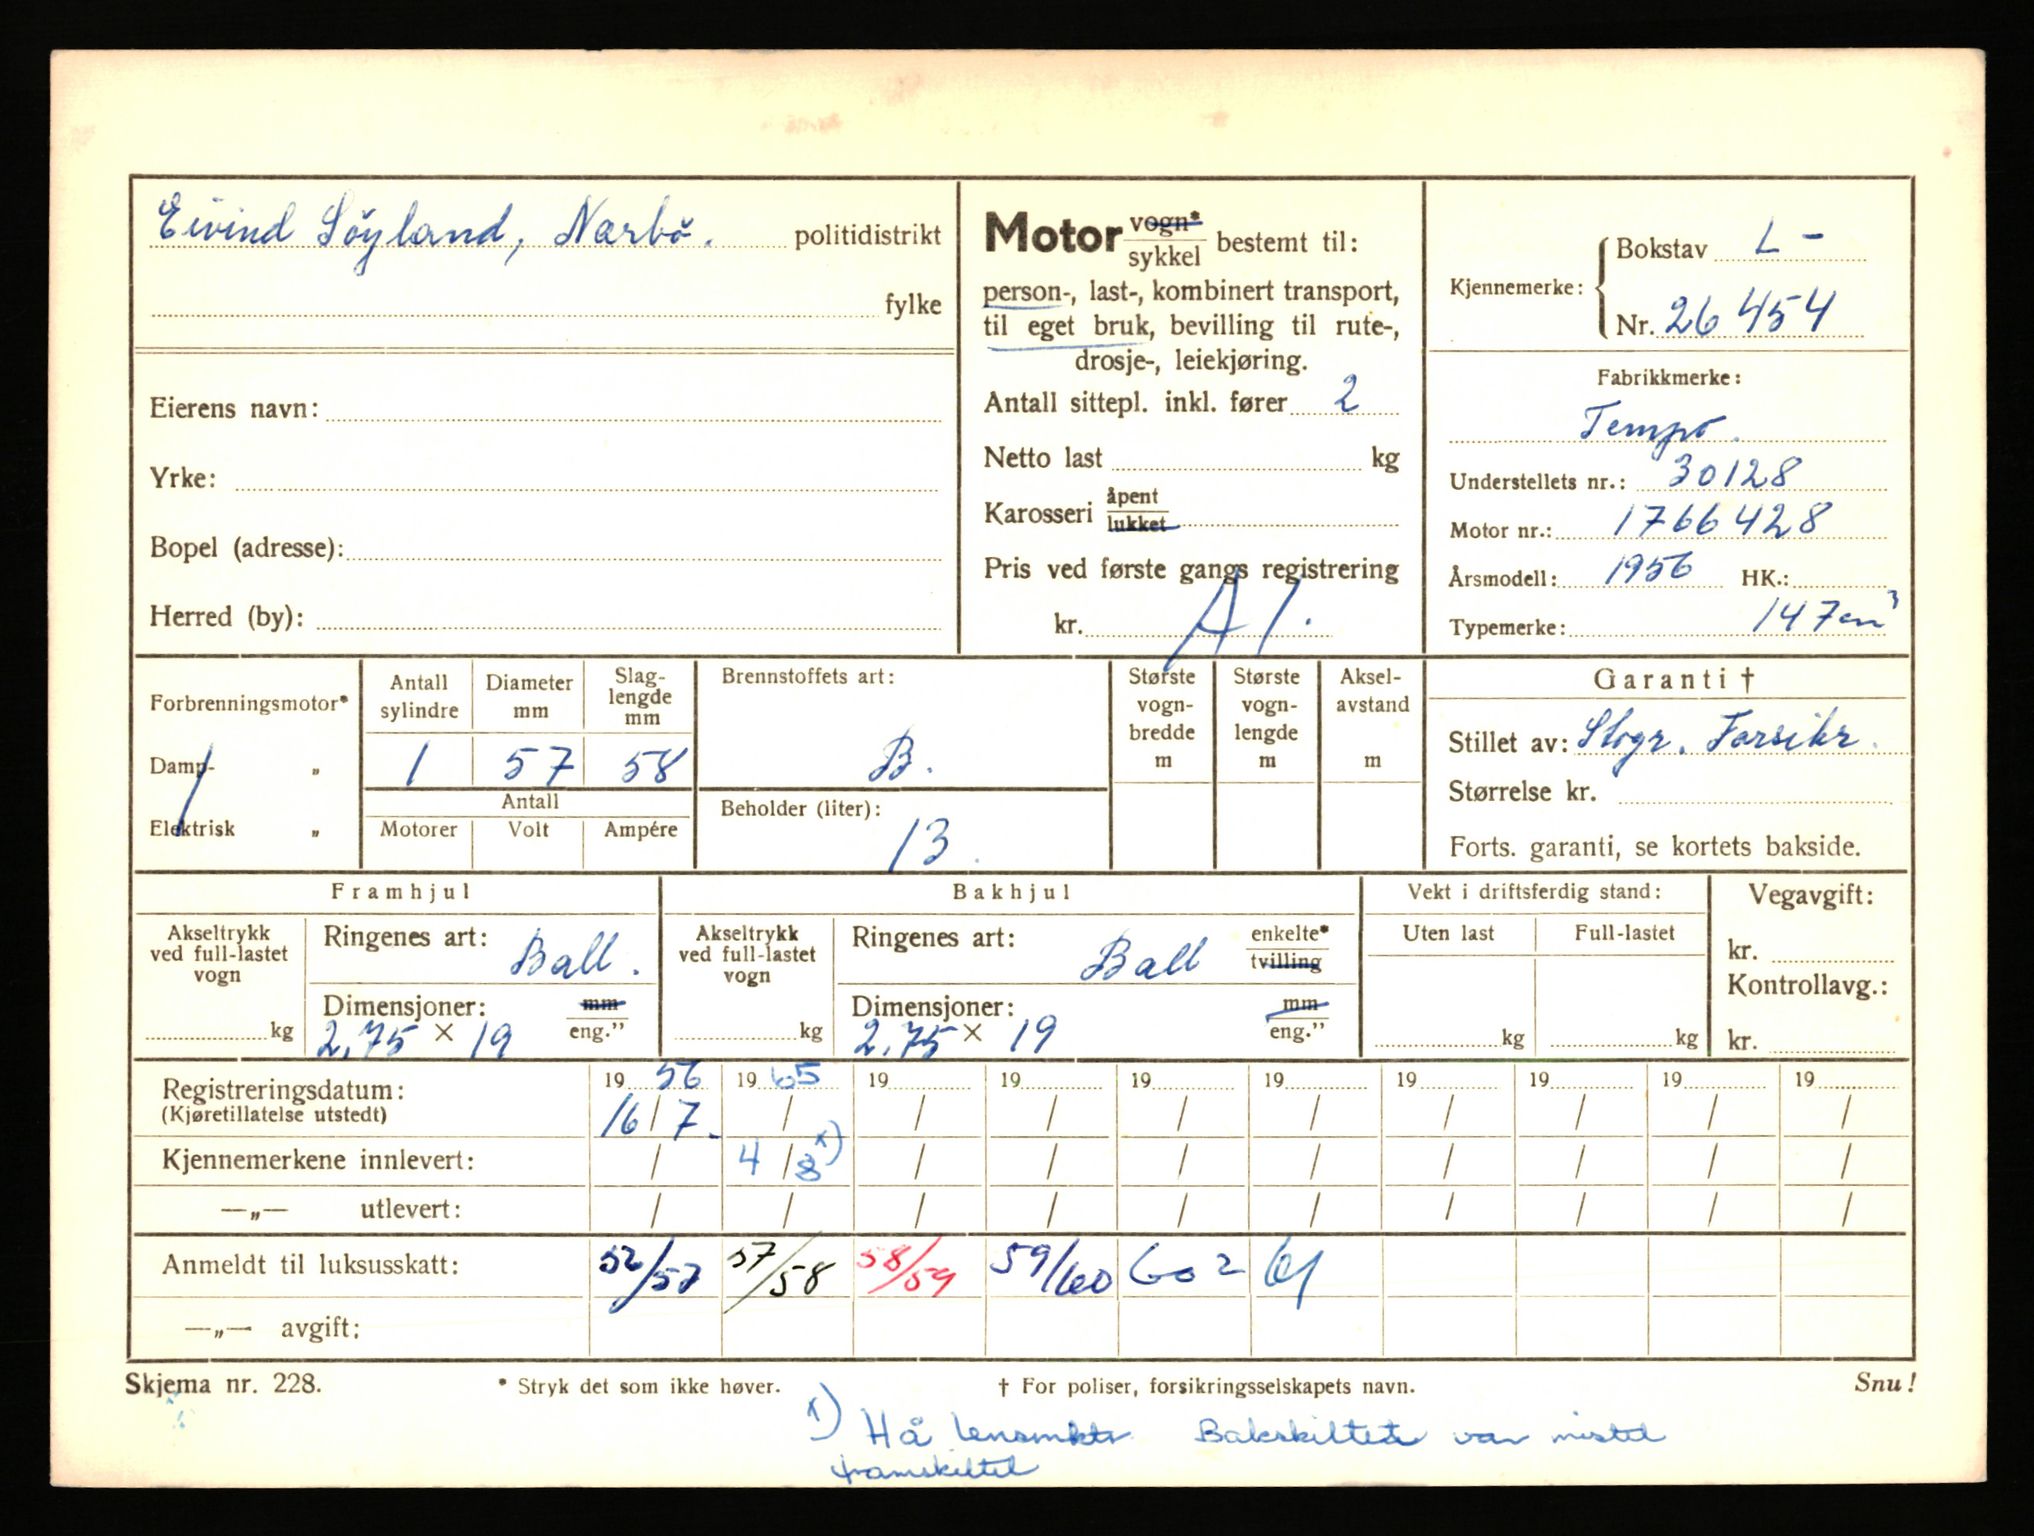 Eivind Söyland, Nærbö. politidistrikt
fylke
Eierens navn:
Yrke:
Bopel (adresse):
Herred (by):
Motor vogn*/sykkel bestemt til:
person-, last-, kombinert transport,
til eget bruk, bevilling til rute-,
drosje-, leiekjøring.
Antall sittepl. inkl. fører 2
Netto last kg
Karosseri åpent/lukket
Pris ved første gangs registrering
kr. A/.
Kjennemerke: Bokstav L-
Nr. 26454
Fabrikkmerke:
Tempo.
Understellets nr.: 30128
Motor nr.: 1766428
Årsmodell: 1956 HK.:
Typemerke: 147cm³
Forbrenningsmotor*
Damp- „
Elektrisk „
Antall sylindre Diameter mm Slag-lengde mm
1 57 58
Antall
Motorer Volt Ampére
Brennstoffets art:
B.
Beholder (liter):
13.
Største vogn-bredde m
Største vogn-lengde m
Aksel-avstand m
Garanti †
Stillet av: Stogr. Forsikr.
Størrelse kr.
Forts. garanti, se kortets bakside.
Framhjul
Akseltrykk ved full-lastet vogn
kg
Ringenes art: Ball.
Dimensjoner: mm/eng.”
2,75 × 19
Bakhjul
Akseltrykk ved full-lastet vogn
kg
Ringenes art: Ball enkelte*/tvilling
Dimensjoner: mm/eng.”
2.75 × 19
Vekt i driftsferdig stand:
Uten last Full-lastet
kg kg
Vegavgift:
kr.
Kontrollavg.:
kr.
Registreringsdatum: 19 56 19 65 19 19 19 19 19 19 19 19
(Kjøretillatelse utstedt) 16/7. / / / / / / / / /
Kjennemerkene innlevert: / 4/8 x) / / / / / / / /
—„— utlevert: / / / / / / / / / /
Anmeldt til luksusskatt: 52/57 57/58 58/59 59/60 60 2 61
—„— avgift:
Skjema nr. 228. * Stryk det som ikke høver. † For poliser, forsikringsselskapets navn. Snu!
x) Hå lensmktr. Bakskiltet var mistet
framskiltet